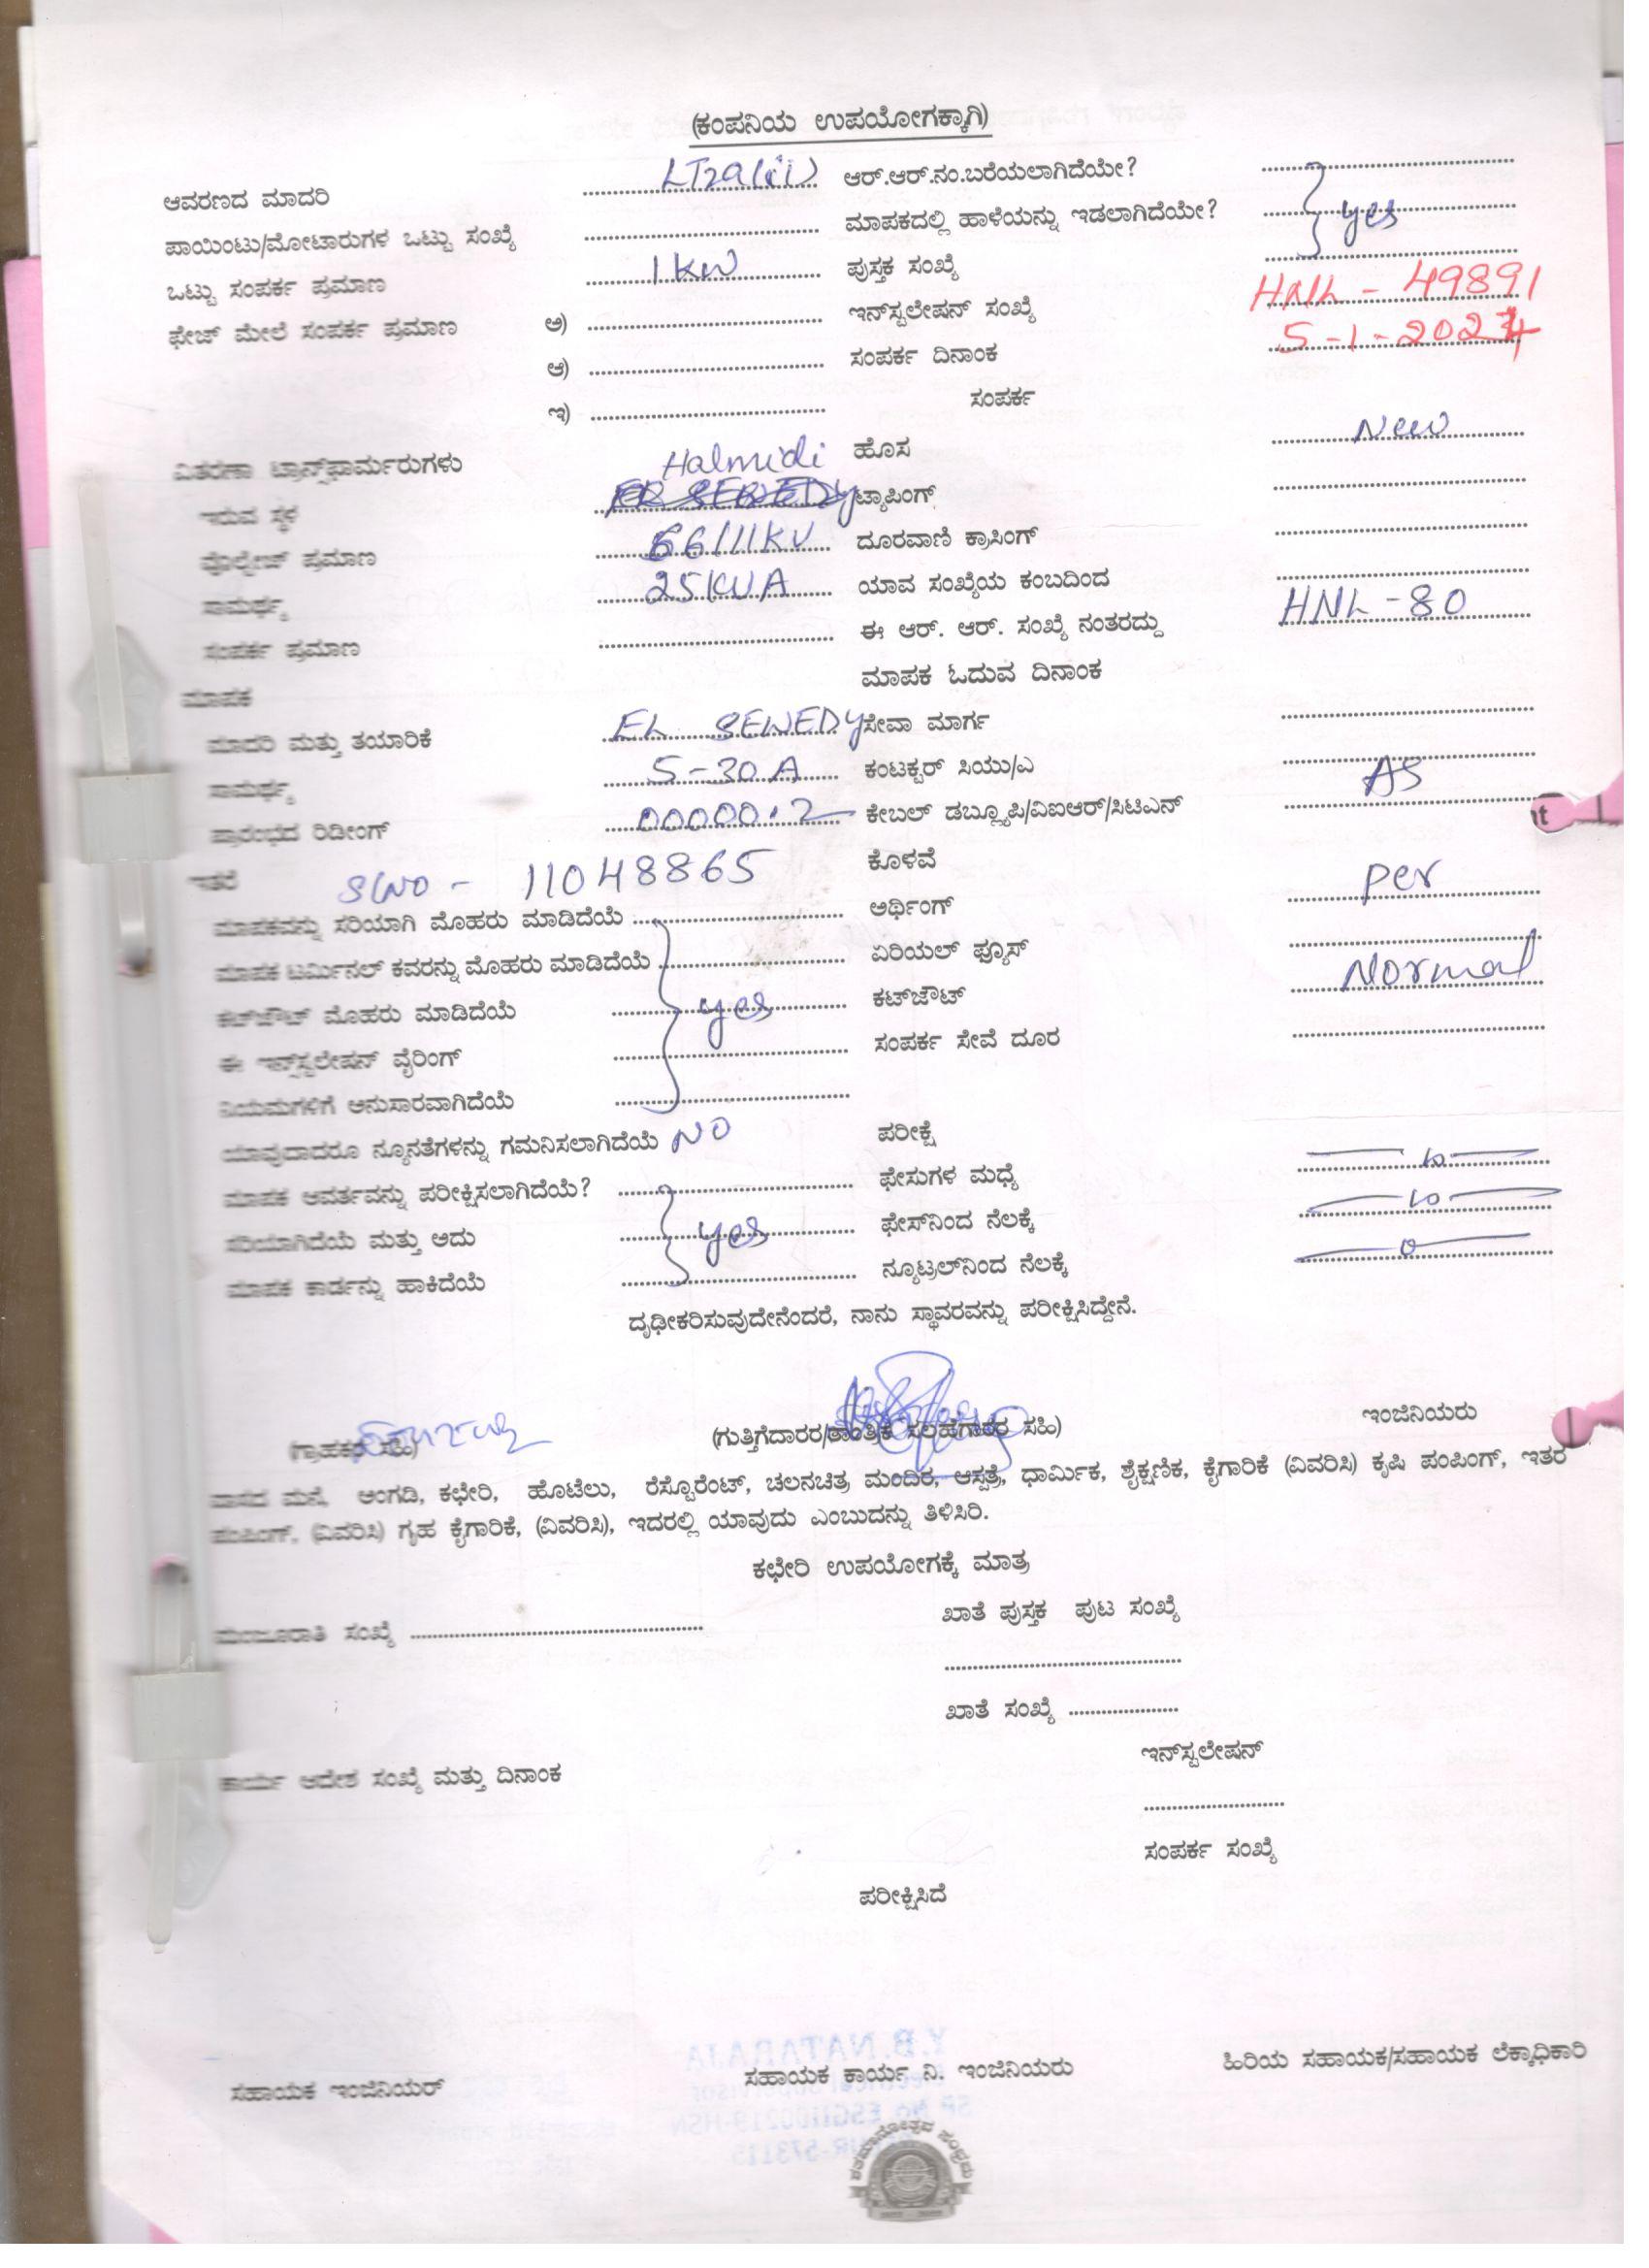 (ಕಂಪನಿಯ ಉಪಯೋಗಕ್ಕಾಗಿ)
ಆವರಣದ ಮಾದರಿ LT2a(ii) ಆರ್.ಆರ್.ನಂ.ಬರೆಯಲಾಗಿದೆಯೇ?
ಪಾಯಿಂಟು/ಮೋಟಾರುಗಳ ಒಟ್ಟು ಸಂಖ್ಯೆ ಮಾಪಕದಲ್ಲಿ ಹಾಳೆಯನ್ನು ಇಡಲಾಗಿದೆಯೇ? yes
ಒಟ್ಟು ಸಂಪರ್ಕ ಪ್ರಮಾಣ 1 KW ಪುಸ್ತಕ ಸಂಖ್ಯೆ
ಫೇಜ್ ಮೇಲೆ ಸಂಪರ್ಕ ಪ್ರಮಾಣ ಅ) ಇನ್‌ಸ್ಟಲೇಷನ್ ಸಂಖ್ಯೆ HNL - 49891
ಆ) ಸಂಪರ್ಕ ದಿನಾಂಕ 5-1-2024
ಇ) ಸಂಪರ್ಕ
ವಿತರಣಾ ಟ್ರಾನ್ಸ್‌ಫಾರ್ಮರುಗಳು Halmidi ಹೊಸ New
ಇರುವ ಸ್ಥಳ ಟ್ಯಾಪಿಂಗ್
ವೊಲ್ಟೇಜ್ ಪ್ರಮಾಣ 66/11KV ದೂರವಾಣಿ ಕ್ರಾಸಿಂಗ್
ಸಾಮರ್ಥ್ಯ 25KVA ಯಾವ ಸಂಖ್ಯೆಯ ಕಂಬದಿಂದ
ಸಂಪರ್ಕ ಪ್ರಮಾಣ ಈ ಆರ್. ಆರ್. ಸಂಖ್ಯೆ ನಂತರದ್ದು HNL - 80
ಮಾಪಕ ಮಾಪಕ ಓದುವ ದಿನಾಂಕ
ಮಾದರಿ ಮತ್ತು ತಯಾರಿಕೆ EL SEWEDY ಸೇವಾ ಮಾರ್ಗ
ಸಾಮರ್ಥ್ಯ 5-30 A ಕಂಟಕ್ಟರ್ ಸಿಯು/ಎ As
ಪ್ರಾರಂಭದ ರಿಡೀಂಗ್ 00000.2 ಕೇಬಲ್ ಡಬ್ಲ್ಯೂಪಿ/ವಿಐಆರ್/ಸಿಟಿಎನ್
ಇತರೆ SlNo - 11048865 ಕೊಳವೆ per
ಮಾಪಕವನ್ನು ಸರಿಯಾಗಿ ಮೊಹರು ಮಾಡಿದೆಯೆ ಅರ್ಥಿಂಗ್
ಮಾಪಕ ಟರ್ಮಿನಲ್ ಕವರನ್ನು ಮೊಹರು ಮಾಡಿದೆಯೆ ಏರಿಯಲ್ ಫ್ಯೂಸ್ Normal
ಕಟ್‌ಔಟ್ ಮೊಹರು ಮಾಡಿದೆಯೆ yes ಕಟ್‌ಔಟ್
ಈ ಇನ್‌ಸ್ಟಲೇಷನ್ ವೈರಿಂಗ್ ಸಂಪರ್ಕ ಸೇವೆ ದೂರ
ನಿಯಮಗಳಿಗೆ ಅನುಸಾರವಾಗಿದೆಯೆ
ಯಾವುದಾದರೂ ನ್ಯೂನತೆಗಳನ್ನು ಗಮನಿಸಲಾಗಿದೆಯೆ NO ಪರೀಕ್ಷೆ
ಮಾಪಕ ಆವರ್ತವನ್ನು ಪರೀಕ್ಷಿಸಲಾಗಿದೆಯೆ? ಫೇಸುಗಳ ಮಧ್ಯೆ
ಸರಿಯಾಗಿದೆಯೆ ಮತ್ತು ಅದು yes ಫೇಸ್‌ನಿಂದ ನೆಲಕ್ಕೆ
ಮಾಪಕ ಕಾರ್ಡನ್ನು ಹಾಕಿದೆಯೆ ನ್ಯೂಟ್ರಲ್‌ನಿಂದ ನೆಲಕ್ಕೆ
ದೃಢೀಕರಿಸುವುದೇನೆಂದರೆ, ನಾನು ಸ್ಥಾವರವನ್ನು ಪರೀಕ್ಷಿಸಿದ್ದೇನೆ.
(ಗ್ರಾಹಕರ ಸಹಿ) (ಗುತ್ತಿಗೆದಾರರ/ತಾಂತ್ರಿಕ ಸಲಹೆಗಾರರ ಸಹಿ) ಇಂಜಿನಿಯರು
ವಾಸದ ಮನೆ, ಅಂಗಡಿ, ಕಛೇರಿ, ಹೊಟೆಲು, ರೆಸ್ಟೊರೆಂಟ್, ಚಲನಚಿತ್ರ ಮಂದಿರ, ಆಸ್ಪತ್ರೆ, ಧಾರ್ಮಿಕ, ಶೈಕ್ಷಣಿಕ, ಕೈಗಾರಿಕೆ (ವಿವರಿಸಿ) ಕೃಷಿ ಪಂಪಿಂಗ್, ಇತರ
ಪಂಪಿಂಗ್, (ವಿವರಿಸಿ) ಗೃಹ ಕೈಗಾರಿಕೆ, (ವಿವರಿಸಿ), ಇದರಲ್ಲಿ ಯಾವುದು ಎಂಬುದನ್ನು ತಿಳಿಸಿರಿ.
ಕಛೇರಿ ಉಪಯೋಗಕ್ಕೆ ಮಾತ್ರ
ಮಂಜೂರಾತಿ ಸಂಖ್ಯೆ ಖಾತೆ ಪುಸ್ತಕ ಪುಟ ಸಂಖ್ಯೆ
ಖಾತೆ ಸಂಖ್ಯೆ
ಇನ್‌ಸ್ಟಲೇಷನ್
ಕಾರ್ಯ ಆದೇಶ ಸಂಖ್ಯೆ ಮತ್ತು ದಿನಾಂಕ
ಸಂಪರ್ಕ ಸಂಖ್ಯೆ
ಪರೀಕ್ಷಿಸಿದೆ
ಸಹಾಯಕ ಇಂಜಿನಿಯರ್ ಸಹಾಯಕ ಕಾರ್ಯ ನಿ. ಇಂಜಿನಿಯರು ಹಿರಿಯ ಸಹಾಯಕ/ಸಹಾಯಕ ಲೆಕ್ಕಾಧಿಕಾರಿ